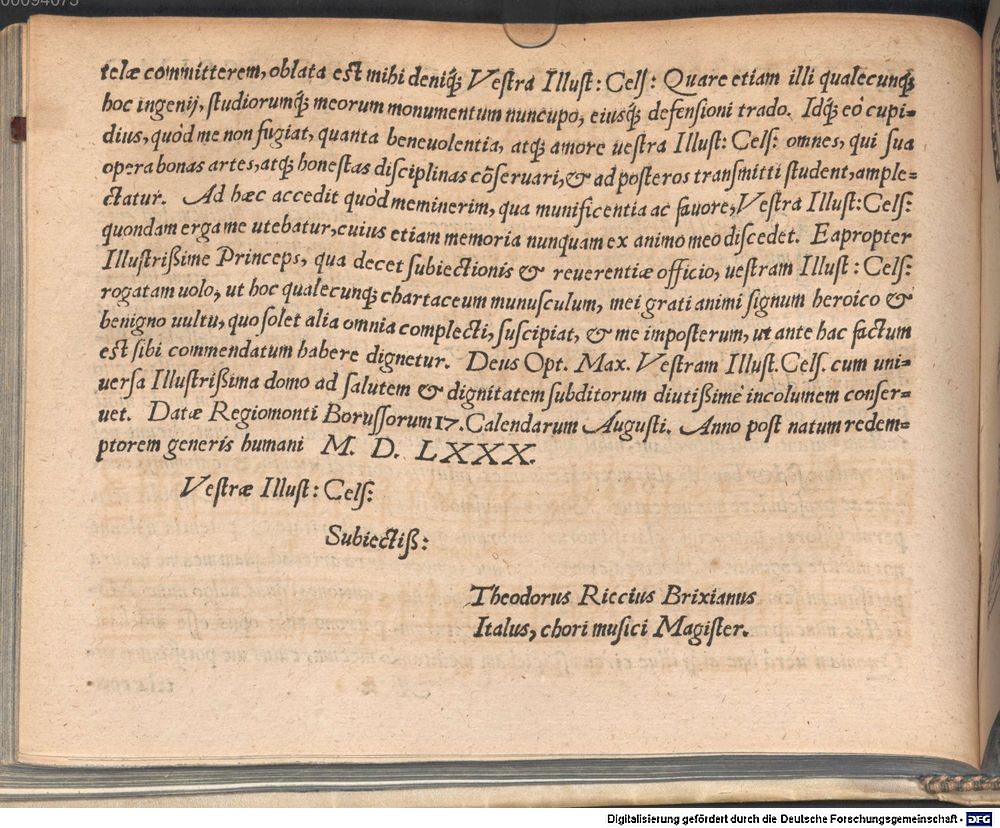 00094075
telæ committerem, oblata est mihi deniq́; Vestra Illust: Cels: Quare etiam illi qualecunq́;
hoc ingenij, studiorumq́; meorum monumentum nuncupo, eiusq́; defensioni trado. Idq́; eò cupi=
dius, quòd me non fugiat, quanta beneuolentia, atq́; amore uestra Illust: Cels: omnes, qui sua
opera bonas artes, atq́; honestas disciplinas cõseruari, & ad posteros transmitti student, ample=
ctatur. Ad hæc accedit quòd meminerim, qua munificentia ac fauore, Vestra Illust: Cels:
quondam erga me utebatur, cuius etiam memoria nunquam ex animo meo discedet. Eapropter
Illustrißime Princeps, qua decet subiectionis & reuerentiæ officio, uestram Illust: Cels:
rogatam uolo, ut hoc qualecunq́; chartaceum munusculum, mei grati animi signum heroico &
benigno uultu, quo solet alia omnia complecti, suscipiat, & me imposterum, ut ante hac factum
est sibi commendatum habere dignetur. Deus Opt. Max. Vestram Illust. Cels. cum uni=
uersa Illustrißima domo ad salutem & dignitatem subditorum diutißimè incolumem conser=
uet. Datæ Regiomonti Borussorum 17. Calendarum Augusti. Anno post natum redem=
ptorem generis humani M. D. LXXX.
Vestræ Illust: Cels:
Subiectiß:
Theodorus Riccius Brixianus
Italus, chori musici Magister.
Digitalisierung gefördert durch die Deutsche Forschungsgemeinschaft - DFG